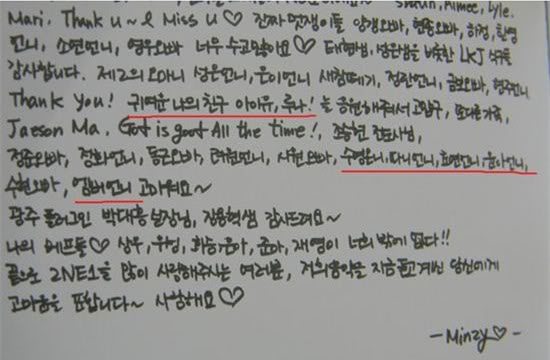 Aimee, Lyle.
Mari. Thank u~& Miss u♡ 진짜 연생이들 양갱오빠, 현중오빠, 하정,
언니, 소연언니, 영우오빠 너무 수고많아요♡ 태형쌤, 비롯한 LKJ 식구들
감사합니다. 제2의 오마니 성은언니, 은이언니 새침떼기, 정란언니, 금보오빠, 현주언니
Thank you! 귀여운 나의 친구 아이유, 루나! 늘 응원해줘서 고맙구, 또다른 가족,
Jaeson Ma. God is good All the time!, 조승현 전도사님,
정준오빠, 정화언니, 동근오빠, 려원언니, 시원오빠, 수영언니, 다니언니, 효연언니, 윤아언니,
수현오빠, 엠버언니 고마워요~
광주 플러그인 박대홍실장님, 장용혁쌤 감사드려요~
나의 베프들♡ 상우, 우님, 준아, 재영이 너희 밖에 없다!!
끝으로 2NE1을 많이 사랑해주시는 여러분, 저희음악을 지금 듣고계신 당신에게
고마움을 표합니다~ 사랑해요♡
-Minzy♡-